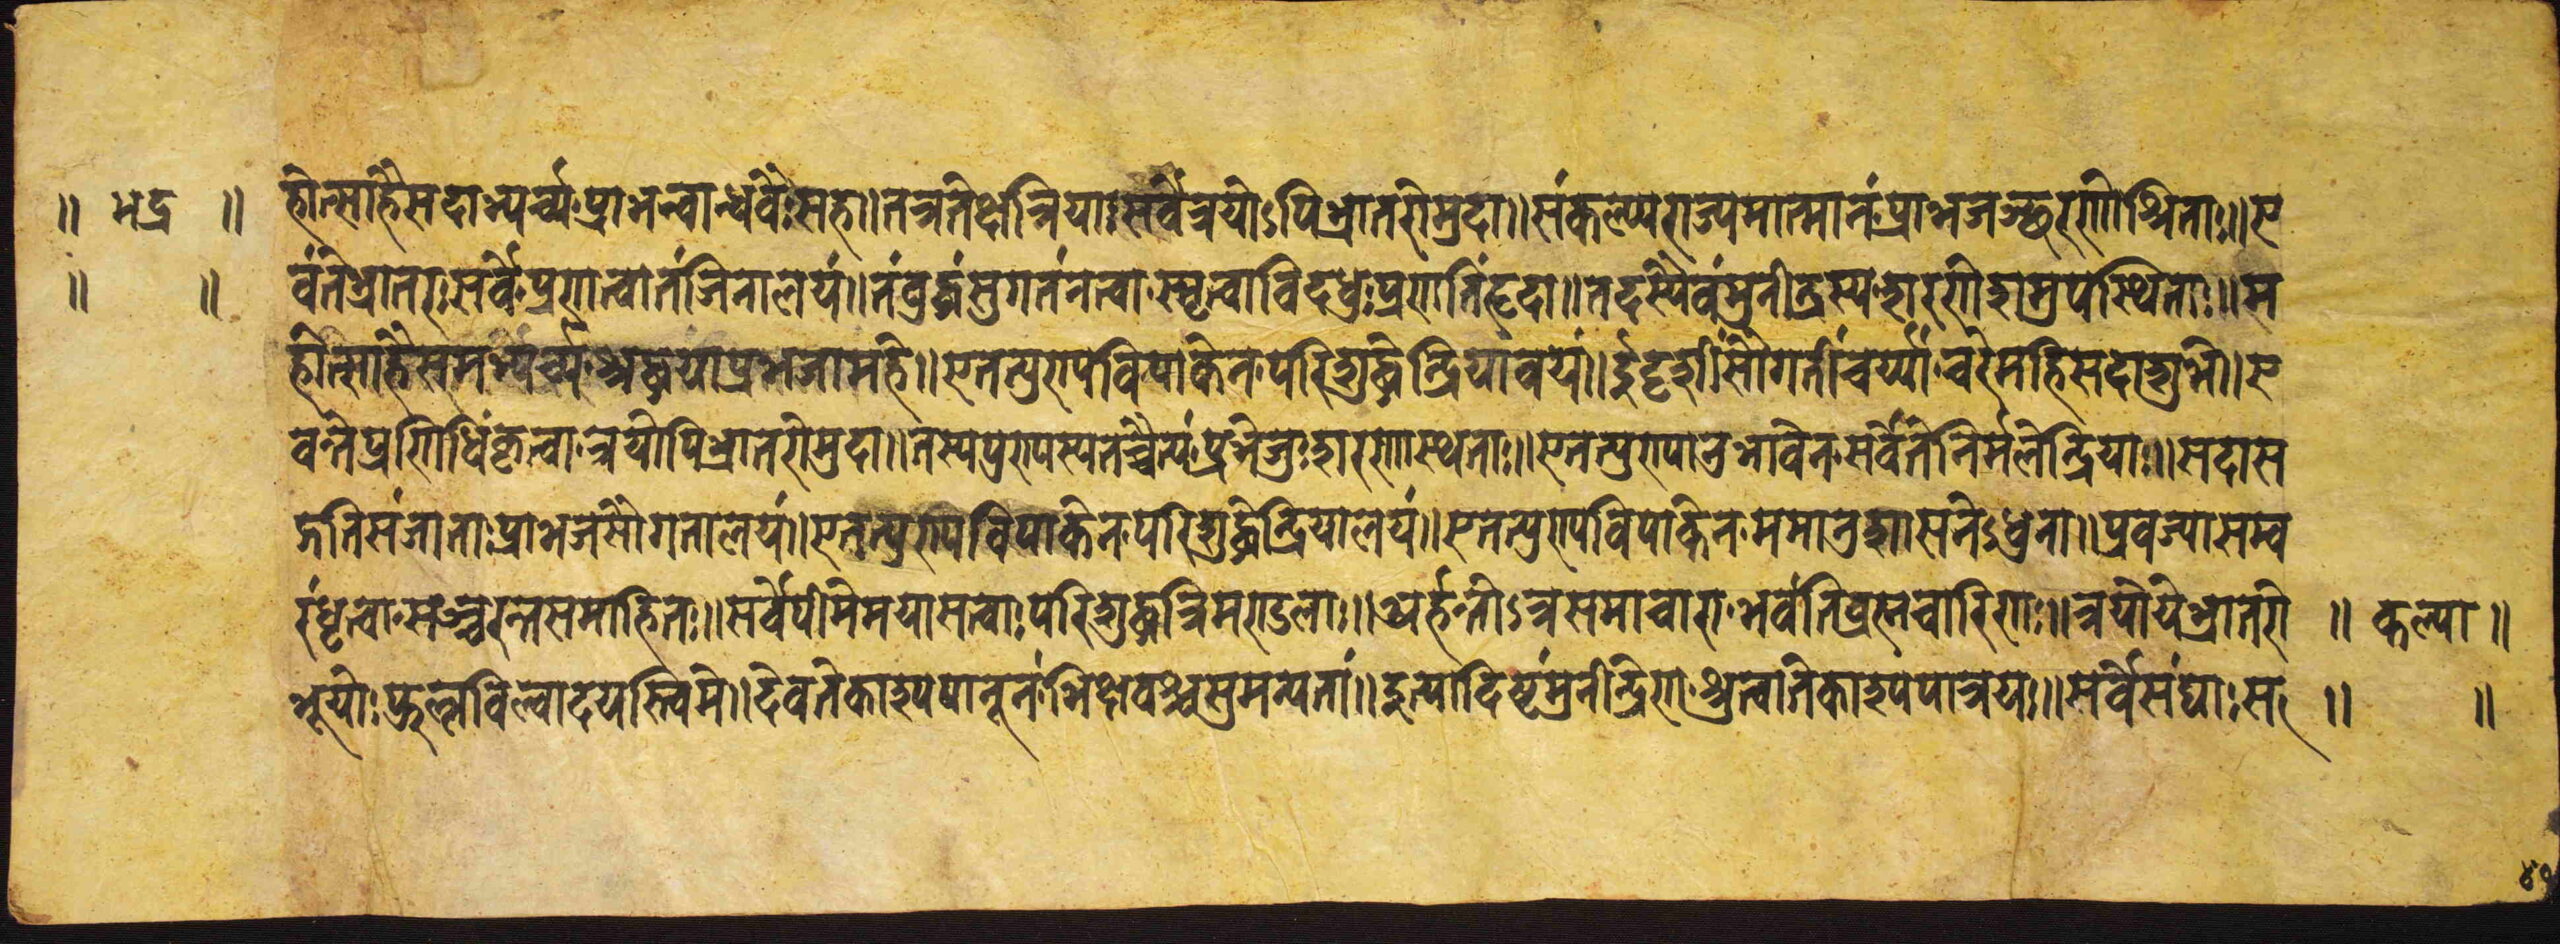 ॥ भद्र ॥ होत्साहैः सदाभ्यर्च्य प्राभजन्बान्धवैः सह॥ तत्र ते क्षत्रियाः सर्वे त्रयोऽपि भ्रातरो मुदा॥ संकल्प्य राज्यमात्मानं प्राभजञ्छरणाश्रिताः॥ ए
॥ ॥ वं ते भ्रातरः सर्वे प्रणत्वा तं जिनालयं॥ तं बुद्धं सुगतं नत्वा स्मृत्वा विदधुः प्रणतिं हृदा॥ तदस्यैवं मुनीद्रस्य शरणे शमुपस्थिताः॥ म
होत्साहैः समभ्यर्च्य श्रद्धया प्रभजामहे॥ एतत्पुण्यविपाकेन परिशुद्धेन्द्रिया वयं॥ ईदृशीं सौगतीं चर्य्यां चरेमहि सदा शुभे॥ ए
वन्ते प्रणिधिं कृत्वा त्रयोपि भ्रातरो मुदा॥ तस्य पुण्यस्य तच्चैत्यं प्रभेजुः शरणे स्थिताः॥ एतत्पुण्यानुभावेन सर्वे ते निर्मलेन्द्रियाः॥ सदा स
द्गतिसंजाताः प्राभजसौगतालयं॥ एतत्पुण्यविपाकेन परिशुद्धेन्द्रियालयं॥ एतत्पुण्यविपाकेन ममानुशासनेऽधुना॥ प्रवज्यासम्व
रं धृत्वा सञ्चरन्ते समाहिताः॥ सर्वेपीमे मया सत्वाः परिशुद्धत्रिमण्डलाः॥ अर्हन्तोऽत्र समाचारा भवंति ब्रह्मचारिणः॥ त्रयो ये भ्रातरो ॥ कल्पा ॥
भूयोः फुल्लबिल्वादयस्त्विमे॥ देवते काश्यपा नूनं भिक्षवश्चसुमन्यतां॥ इत्यादिष्टं मुनीन्द्रेण श्रुत्वा ते काश्यपा त्रयः॥ सर्वे संघाः स ॥ ॥
४१